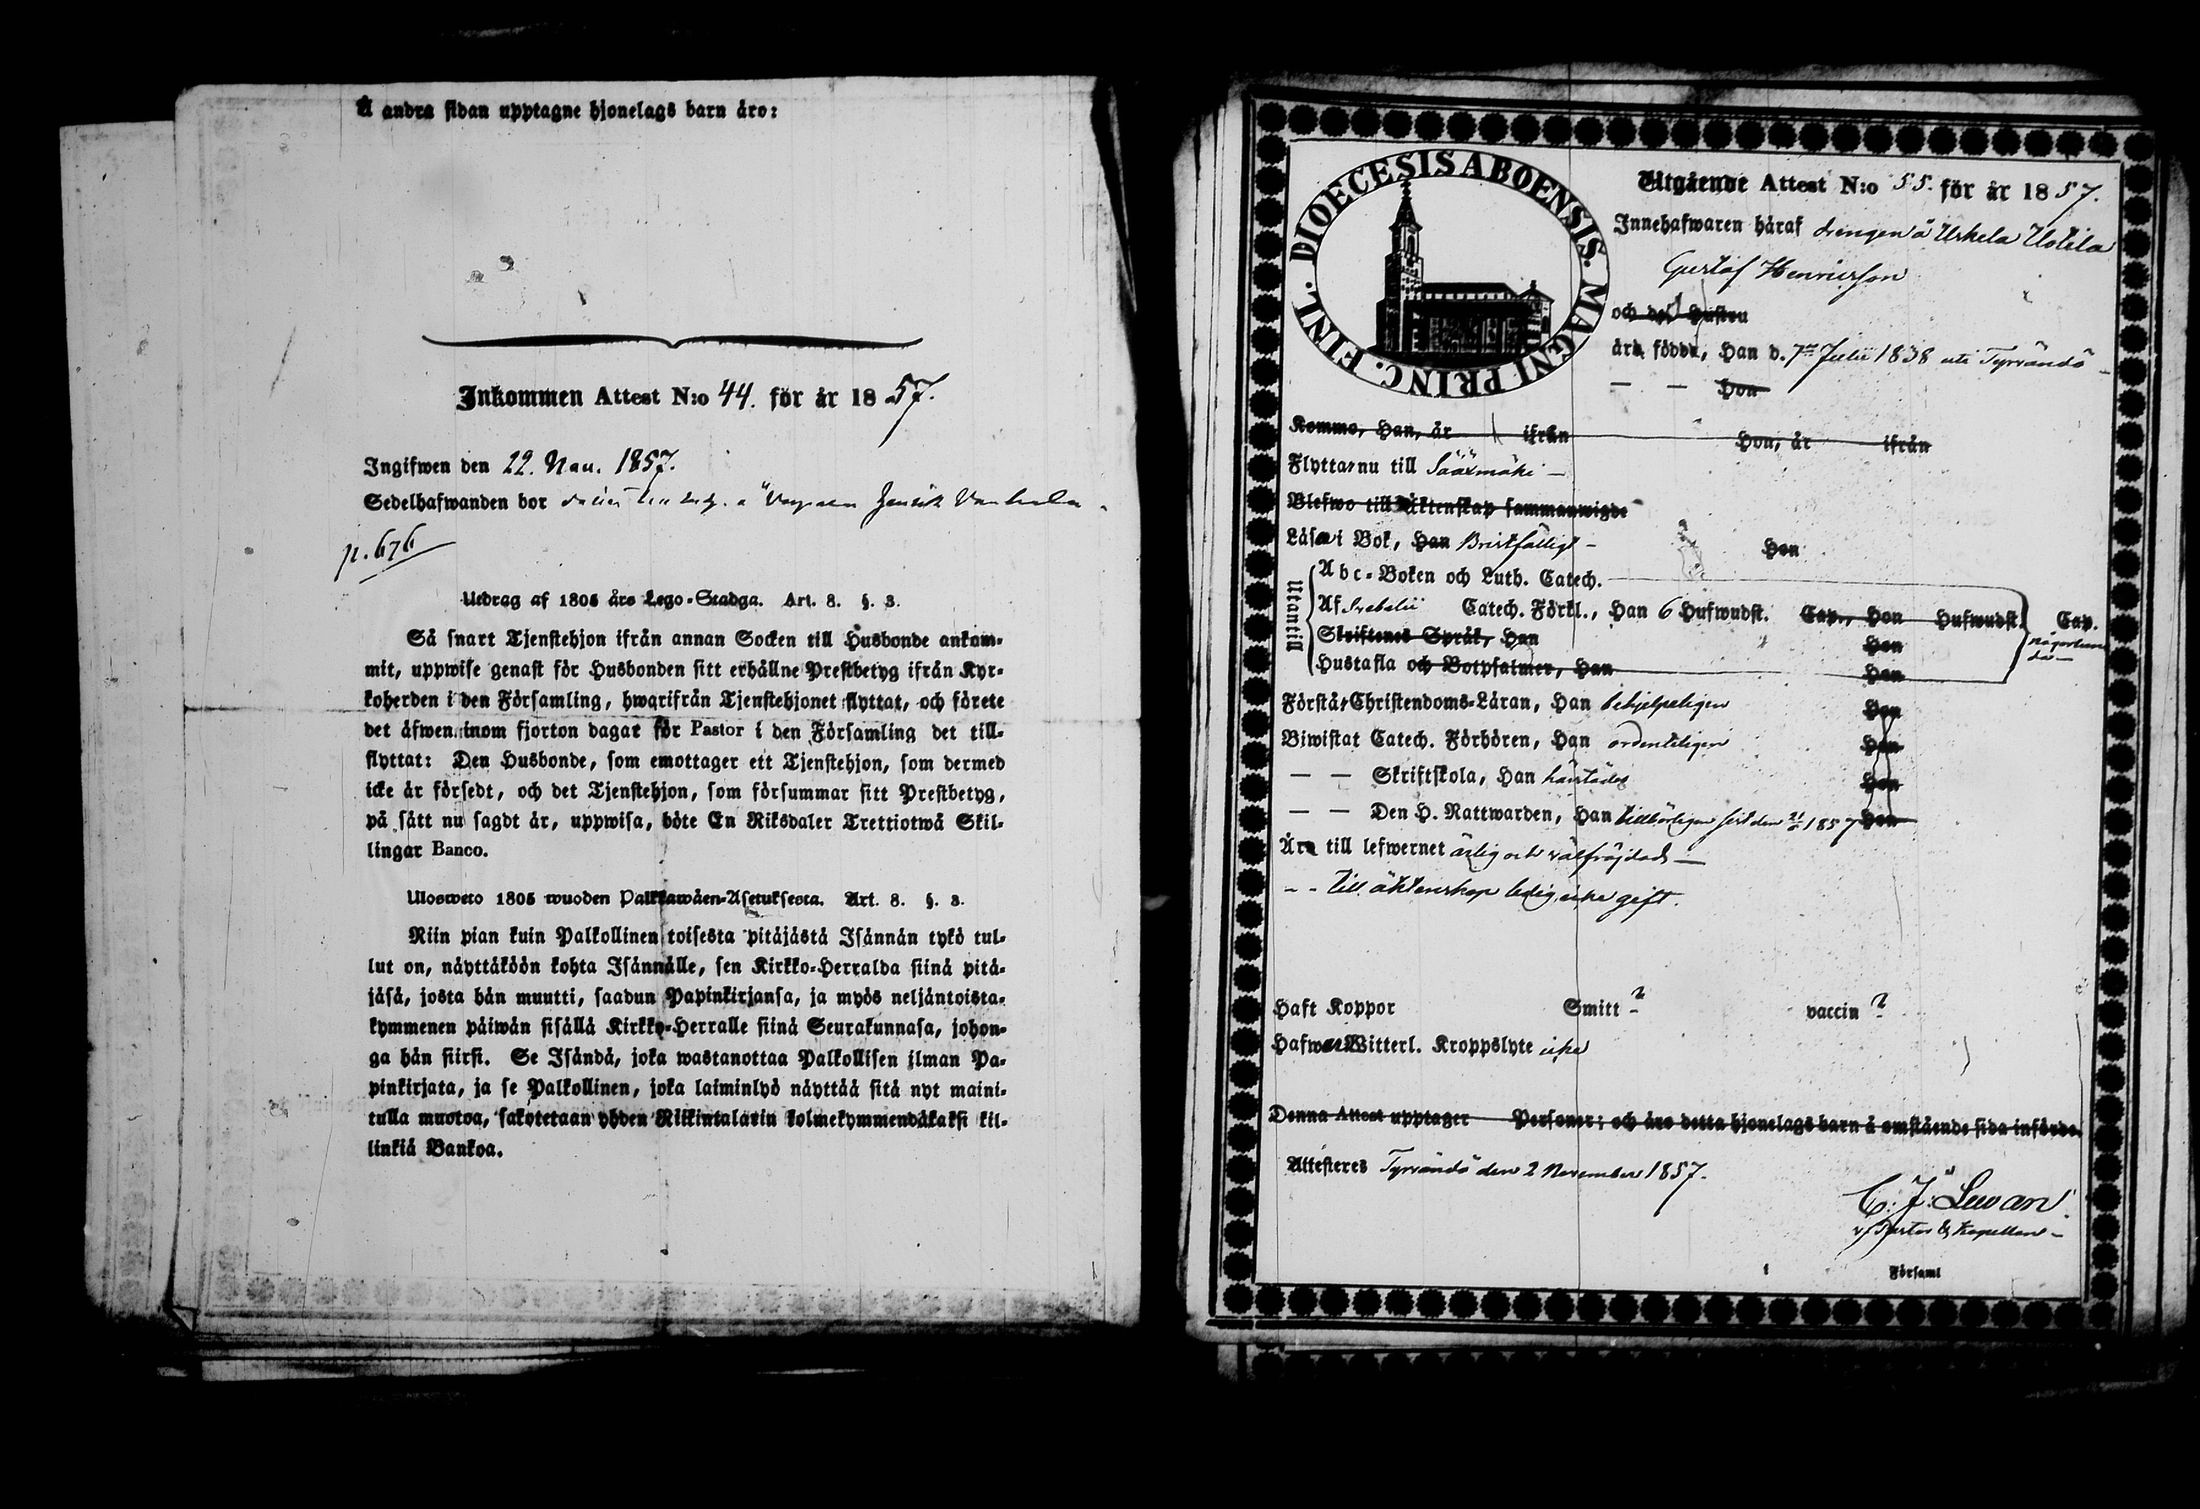 Å andra sidan upptagne hjonelags barn äro:
Inkommen Attest N:o 44. för år 1857.
Ingifwen den 22. Nov. 1857.
Sedelhafwanden bor
p. 676
Utdrag af 1805 års Lego-Stadga. Art. 8. §. 3.
Så snart Tjenstehjon ifrån annan Socken till Husbonde ankom-
mit, uppwise genast för Husbonden sitt erhållne Prestbetyg ifrån Kyr-
koherden i den Församling, hwarifrån Tjenstehjonet flyttat, och förete
det äfwen inom fjorton dagar för Pastor i den Församling det till-
flyttat: Den Husbonde, som emottager ett Tjenstehjon, som dermed
icke är försedt, och det Tjenstehjon, som försummar sitt Prestbetyg,
på sätt nu sagdt är, uppwisa, böte En Riksdaler Trettiotwå Skil-
lingar Banco.
Ulosweto 1805 wuoden Palkkawäen-Asetuksesta. Art. 8. §. 3.
Niin pian kuin Palkollinen toisesta pitäjästä Isännän tykö tul-
lut on, näyttäköön kohta Isännälle, sen Kirkko-Herralda siinä pitä-
jäsä, josta hän muutti, saadun Papinkirjansa, ja myös neljäntoista-
kymmenen päiwän sisällä Kirkko-Herralle siinä Seurakunnasa, johon-
ga hän siirsi. Se Isändä, joka wastanottaa Palkollisen ilman Pa-
pinkirjata, ja se Palkollinen, joka laiminlyö näyttää sitä nyt maini-
tulla muotoa, sakotetaan yhden Riikintalarin kolmekymmendäkaksi kil-
linkiä Bankoa.
DIOECESIS ABOENSIS. MAGNI PRINC. FINL.
Utgående Attest N:o 55. för år 1857.
Innehafwaren häraf drengen å Urkela Uotila
Gustaf Henricsson
och des hustru
äro födde, Han d. 7de Julii 1838 uti Tyrvändö
— — Hon
Komme, Han, år ifrån Hon, år ifrån
Flytta nu till Sääxmäki —
Blefwo till Äktenskap sammanwigde
Läsa i Bok, Han Bristfälligt — Hon
Utantill
Abc-Boken och Luth. Catech.
Af Svebelii Catech. Förkl., Han 6 Hufwudst. Cap., Hon Hufwudst. Cap.
Skriftenes Språk, Han Hon
Hustafla och Botpsalmer, Han Hon
någorlunda —
Förstå Christendoms-Läran, Han behjelpeligen Hon
Biwistat Catech. Förhören, Han ordenteligen Hon
— — Skriftskola, Han härstädes Hon
— — Den H. Nattwarden, Han tillbörligen sist den 1857 Hon
Äro till lefwernet ärlig och välfrejdad —
- - till äktenskap ledig, icke gift.
Haft Koppor Smitt ? vaccin ?
Hafwer Witterl. Kroppslyte icke
Denna Attest upptager Personer; och äro detta hjonelags barn å omstående sida införde.
Attesteres Tyrvändö den 2 November 1857.
C. J. Lewan
v. Pastor & Kapellan —
i Församl